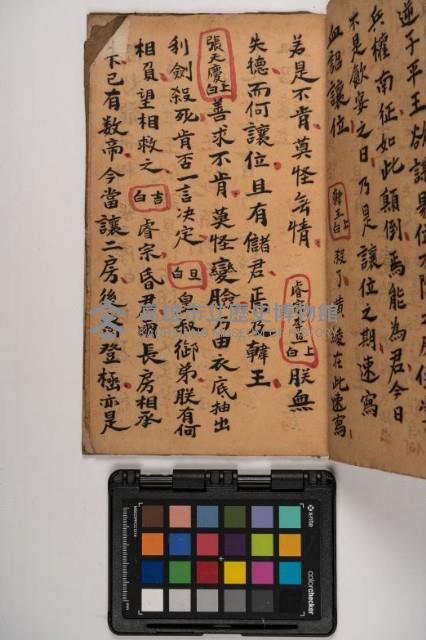 逆子平王欲讓
兵權南征如此顛倒焉能為君今日
不是飲宴之日乃是讓位之期速寫
血詔讓位 韓王上白 殺了黃綾在此速寫
若是不肯莫怪無情 睿宗上白 朕無
失德而何讓位且有儲君焉乃韓王
張天慶上白 善求不肯莫怪變臉刀由衣底抽出
利劍殺死肯否一言決定 旦白 皇叔御弟朕有何
相負望相救之 吉白 睿宗昏君爾長房相承
下已有数帝今當讓二房後登極亦是
高雄市立歷史博物館
x-rite
colorchecker